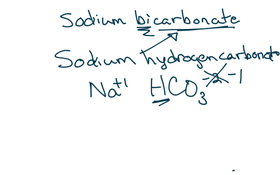 Sodium bicarbonate
Sodium hydrogencarbonate
Na+1 HCO3 -2 -1